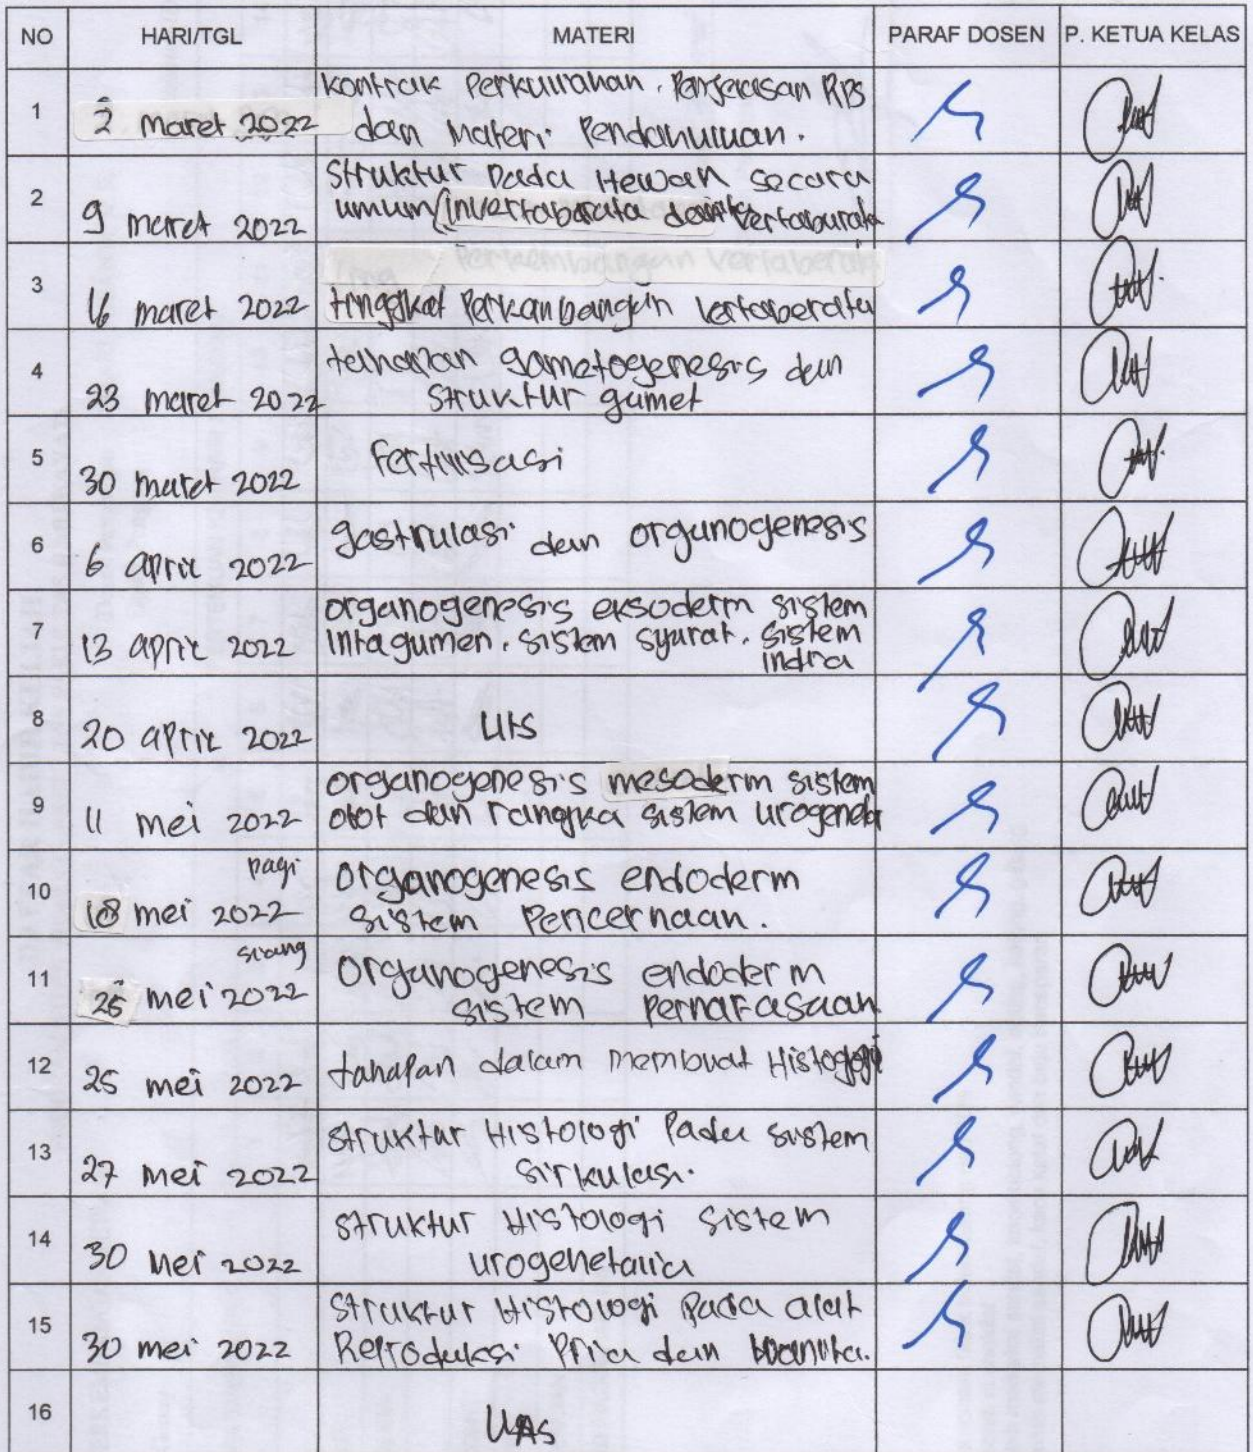 NO HARI/TGL MATERI PARAF DOSEN P. KETUA KELAS
1 2 maret 2022 kontrak Perkuliahan. Penjelasan RPS
dan Materi Pendahuluan.
2 9 maret 2022 Struktur Pada Hewan secara
umum (invertabarata dan vertaburata
3 16 maret 2022 Perkembangan vertaberata
tinggkat Perkanbangan vertaberata
4 23 maret 2022 tahapan gametogenesis dan
struktur gamet
5 30 maret 2022 Fertilisasi
6 6 april 2022 gastrulasi dan organogenesis
7 13 april 2022 organogenesis eksoderm sistem
Intagumen. sistem syarat. sistem
indra
8 20 april 2022 UTS
9 11 mei 2022 organogenesis mesoderm sistem
otot dan rangka sistem urogenetal
10 18 mei 2022 pagi organogenesis endoderm
sistem Pencernaan.
11 25 mei 2022 siang organogenesis endoderm
sistem Pernafasaan
12 25 mei 2022 tahapan dalam membuat Histologi
13 27 mei 2022 struktur Histologi Pada sistem
sirkulasi.
14 30 Mei 2022 struktur Histologi sistem
urogenetalia
15 30 mei 2022 struktur Histologi Pada alat
Reproduksi Pria dan wanita.
16 UAS